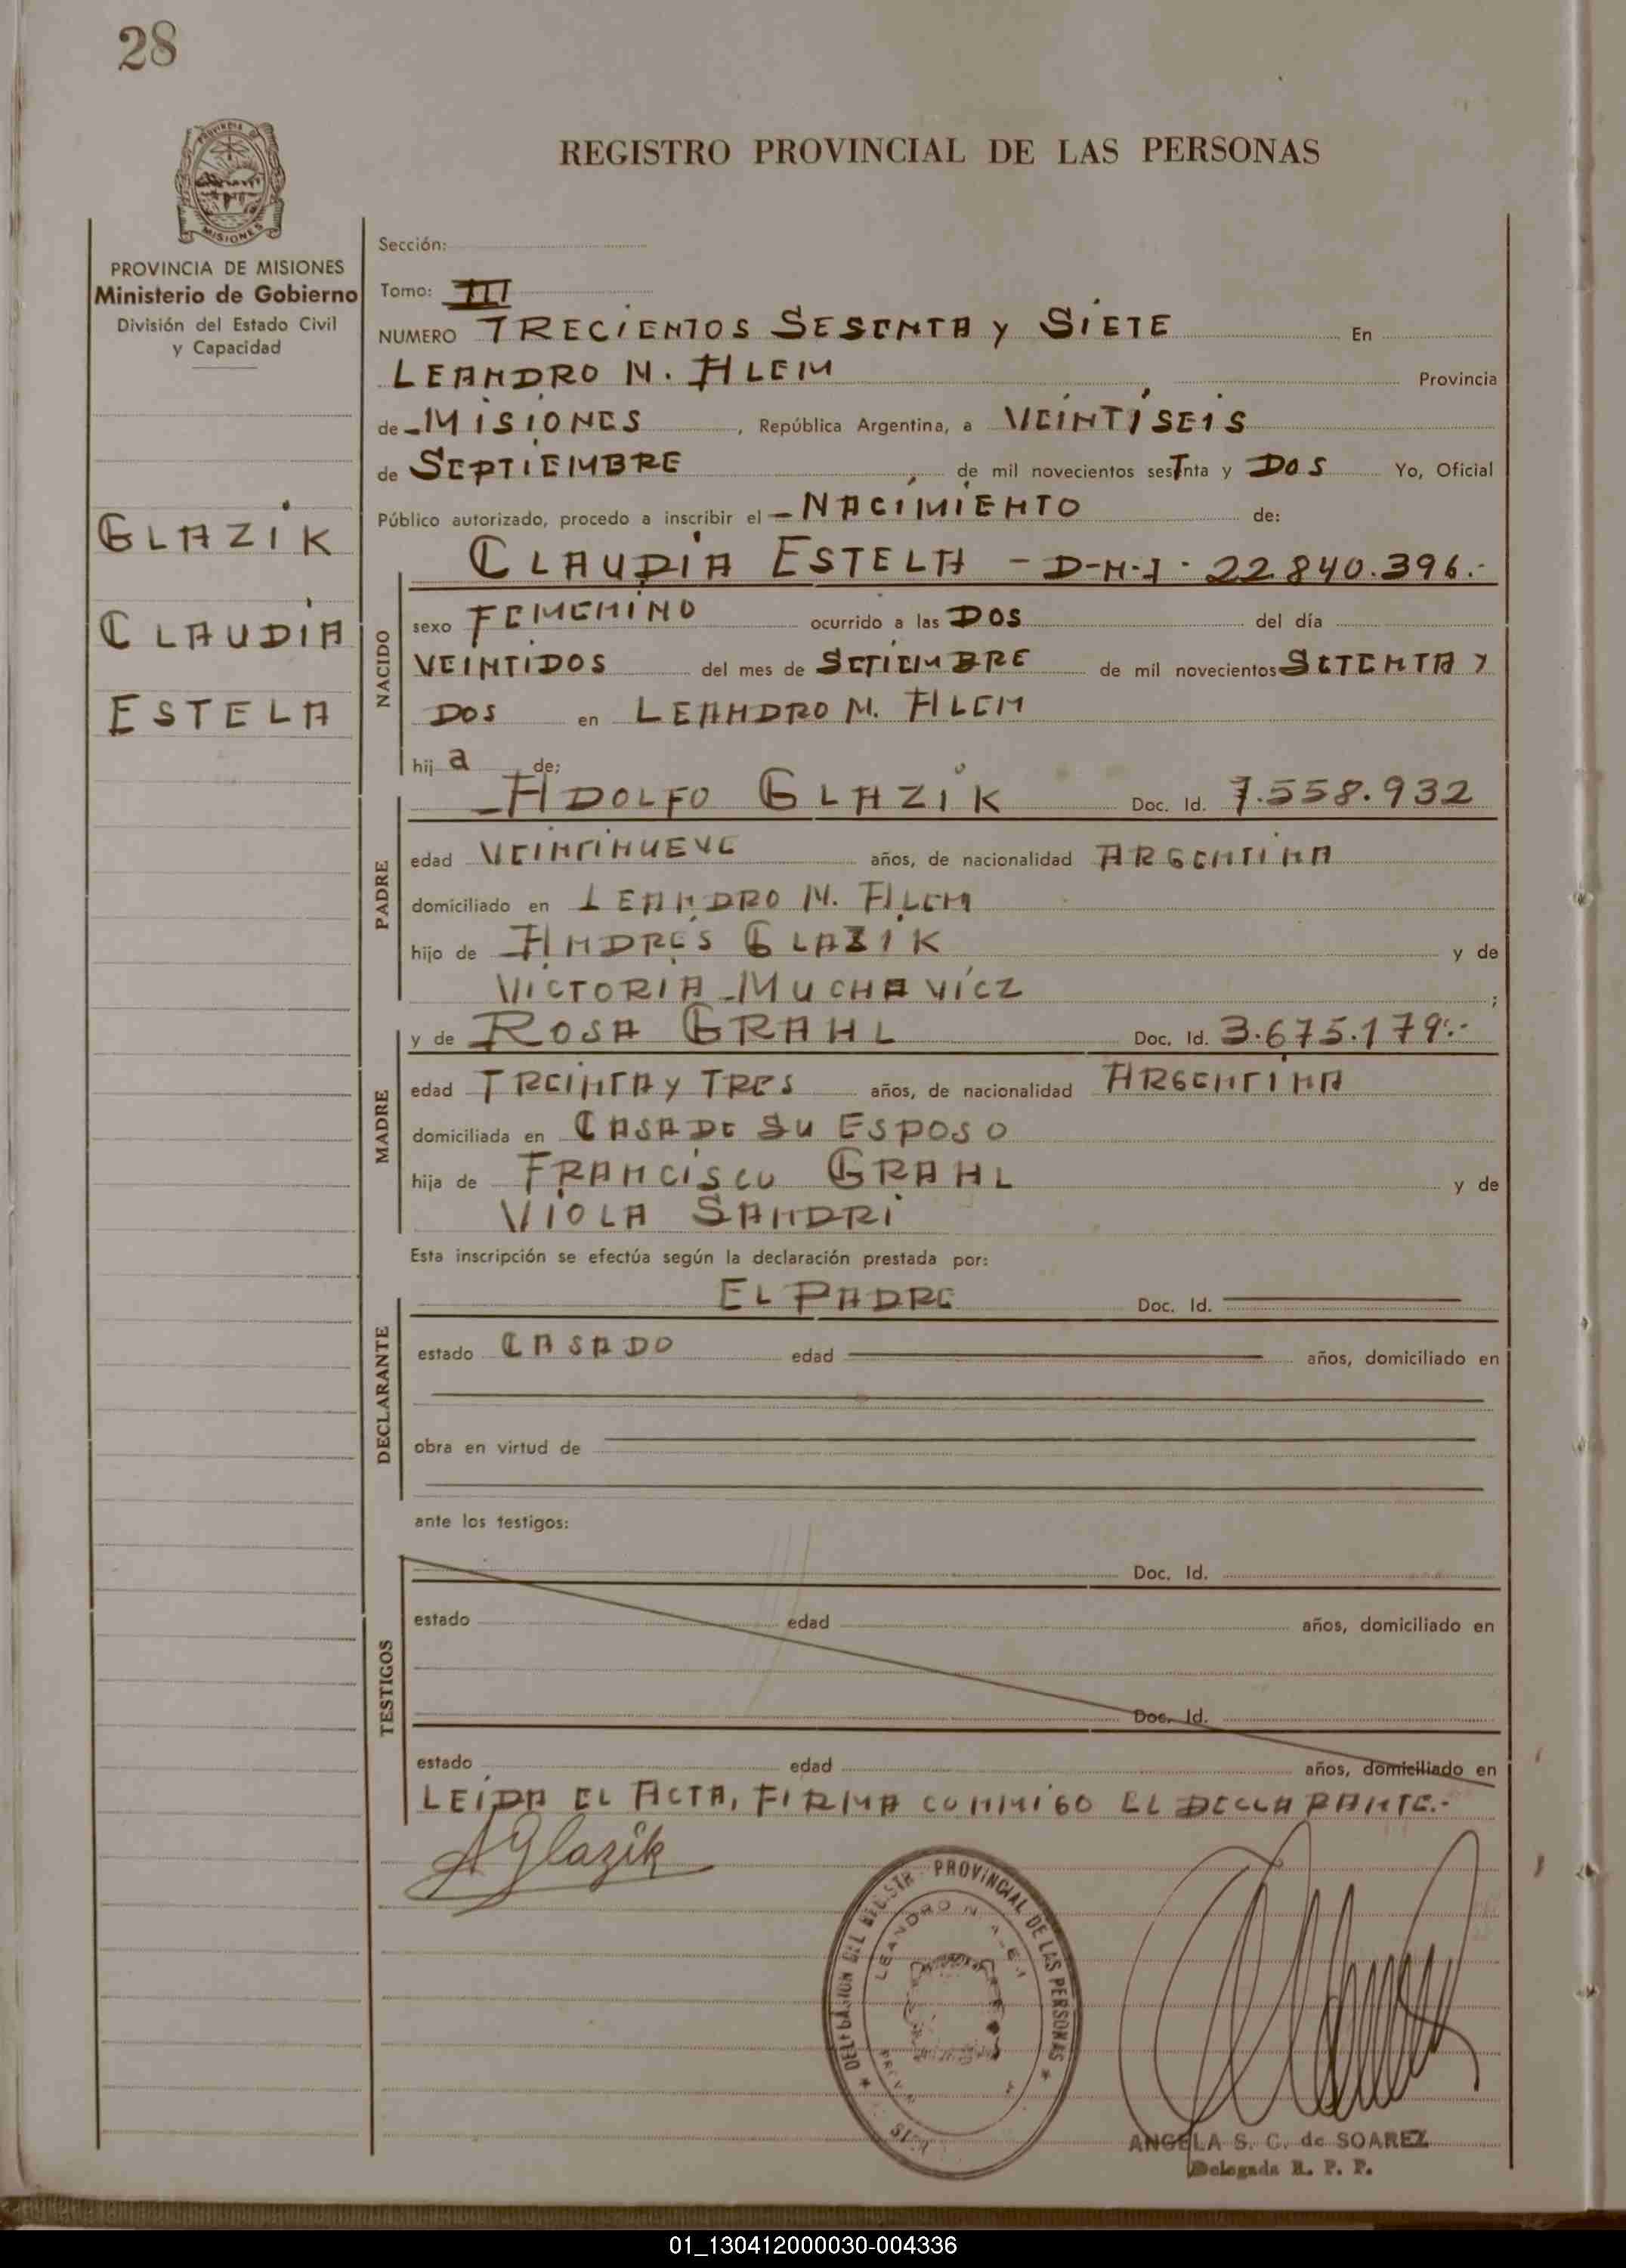 28
REGISTRO PROVINCIAL DE LAS PERSONAS
MISIONES
PROVINCIA DE MISIONES
Ministerio de Gobierno
División del Estado Civil
y Capacidad
GLAZIK
CLAUDIA
ESTELA
Sección:
Tomo: III
NUMERO TRECIENTOS SESENTA Y SIETE En
LEANDRO N. ALEM Provincia
de MISIONES, República Argentina, a VEINTISEIS
de SEPTIEMBRE de mil novecientos sesTnta y DOS Yo, Oficial
Público autorizado, procedo a inscribir el - NACIMIENTO de:
CLAUDIA ESTELA - D-N-I- 22.840.396.-
NACIDO
sexo FEMENINO ocurrido a las DOS del día
VEINTIDOS del mes de SETIEMBRE de mil novecientos SETENTA Y
DOS en LEANDRO N. ALEM
hij a de:
PADRE
ADOLFO GLAZIK Doc. Id. 7.558.932
edad VEINTINUEVE años, de nacionalidad ARGENTINA
domiciliado en LEANDRO N. ALEM
hijo de ANDRES GLAZIK y de
VICTORIA MUCHAVICZ ;
MADRE
y de ROSA GRAHL Doc. Id. 3.675.179.-
edad TREINTA Y TRES años, de nacionalidad ARGENTINA
domiciliada en CASA DE SU ESPOSO
hija de FRANCISCO GRAHL y de
VIOLA SANDRI
Esta inscripción se efectúa según la declaración prestada por:
DECLARANTE
EL PADRE Doc. Id.
estado CASADO edad años, domiciliado en
obra en virtud de
ante los testigos:
TESTIGOS
Doc. Id.
estado edad años, domiciliado en
Doc. Id.
estado edad años, domiciliado en
LEIDA EL ACTA, FIRMA CONMIGO EL DECLARANTE.-
AGlazik
DELEGACION DEL REGISTR PROVINCIAL DE LAS PERSONAS
LEANDRO N ALEM
ANGELA S. C. de SOAREZ
Delegada R. P. P.
01_130412000030-004336